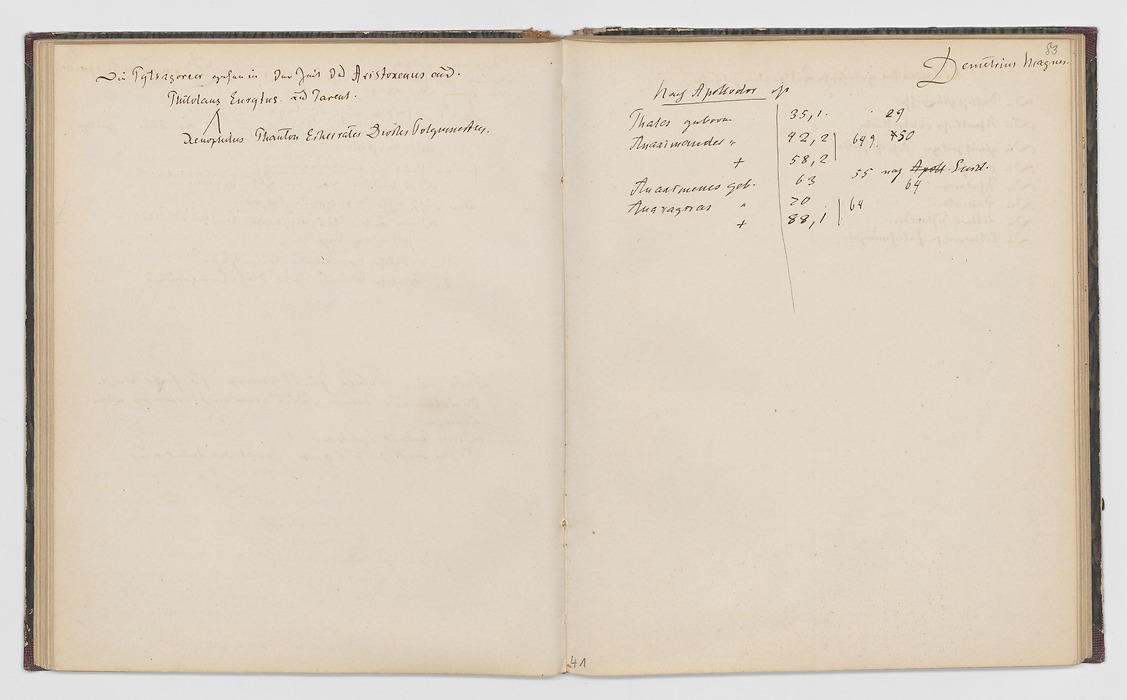 Die Pythagoreer gehen in der Zeit des Aristoxenus aus.
Philolaus Eurytus aus Tarent.
Xenophilus Phanton Echecrates Diocles Polymnestus.
83
Demetrius Magnes.
Nach Apollodor
Thales geboren 35,1. 29
Anaximander " 42,2 649. 50
+ 58,2
Anaximenes geb. 63 55 nach Apoll Suid.
64
Anaxagoras " 70 64
+ 88,1
41